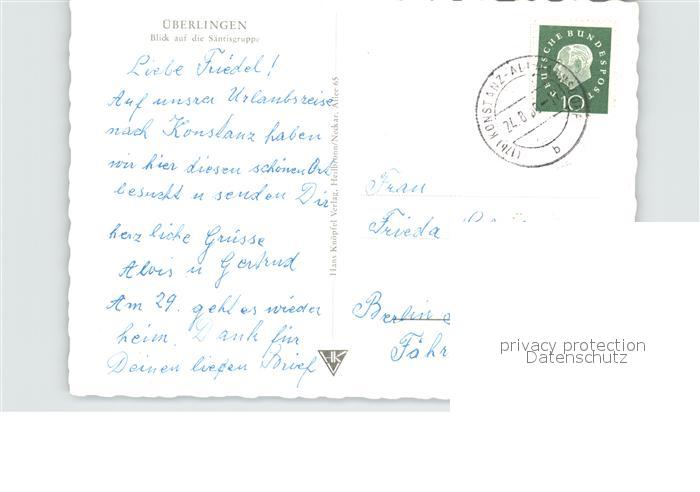 ÜBERLINGEN
Blick auf die Säntisgruppe
Liebe Friedel!
Auf unsrer Urlaubsreise
nach Konstanz haben
wir hier diesen schönen Ort
besucht u senden Dir
herzliche Grüsse
Alois u Gertrud
Am 29. geht es wieder
heim. Dank für
Deinen lieben Brief
Hans Knöpfel Verlag, Heilbronn/Neckar, Allee 65
HK
DEUTSCHE BUNDESPOST
10
(17b) KONSTANZ
24.8
b
Frau
Frieda
Berlin
privacy protection
Datenschutz